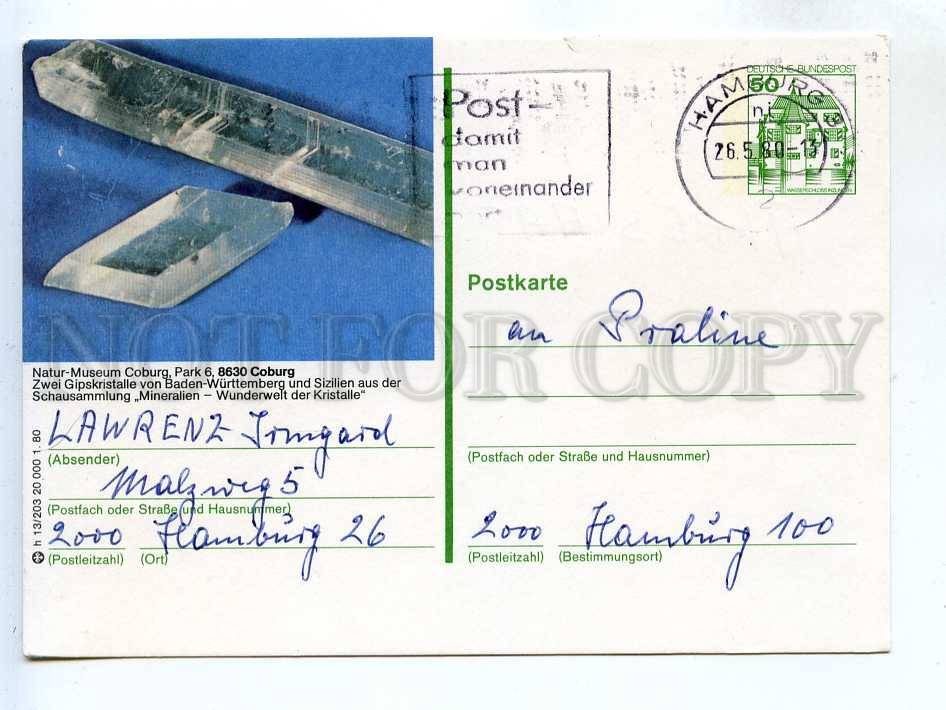 DEUTSCHE BUNDESPOST
50
WASSERSCHLOSS INZLINGEN
HAMBURG
26.5.80-13
Post-
damit
man
voneinander
Postkarte
an Praline
NOT FOR COPY
Natur-Museum Coburg, Park 6, 8630 Coburg
Zwei Gipskristalle von Baden-Württemberg und Sizilien aus der
Schausammlung „Mineralien – Wunderwelt der Kristalle“
LAWRENZ Irmgard
(Absender)
Malzweg 5
(Postfach oder Straße und Hausnummer)
2000 Hamburg 26
(Postleitzahl) (Ort)
h 13/203 20 000 1. 80
(Postfach oder Straße und Hausnummer)
2000 Hamburg 100
(Postleitzahl) (Bestimmungsort)